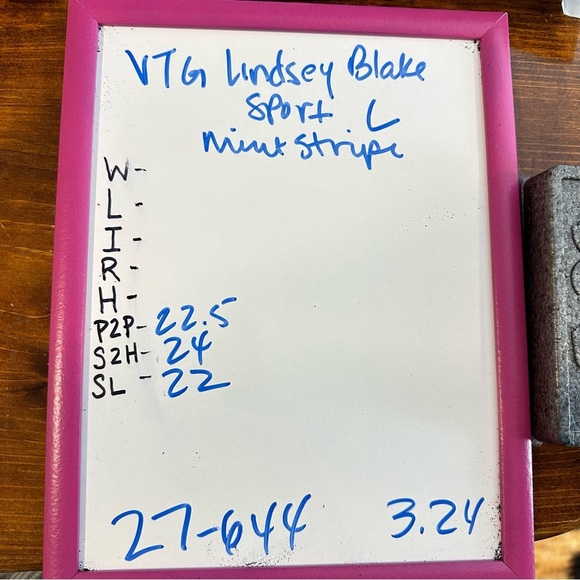 VTG Lindsey Blake
Sport L
Mint Stripe
W-
L-
I-
R-
H-
P2P-22.5
S2H-24
SL-22
27-644 3.24